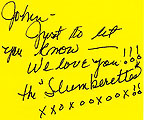 John -
Just to let
you know —
We love you!!!
the "Slumberettes"
xxooxoox